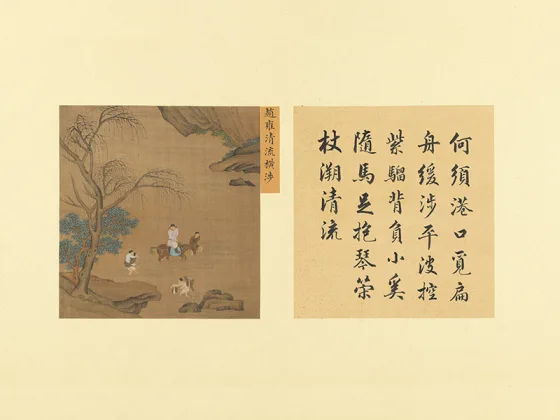 何須港口覓扁
舟緩涉平波控
紫騮背負小奚
隨馬足抱琴策
杖溯清流
趙雍清流橫涉